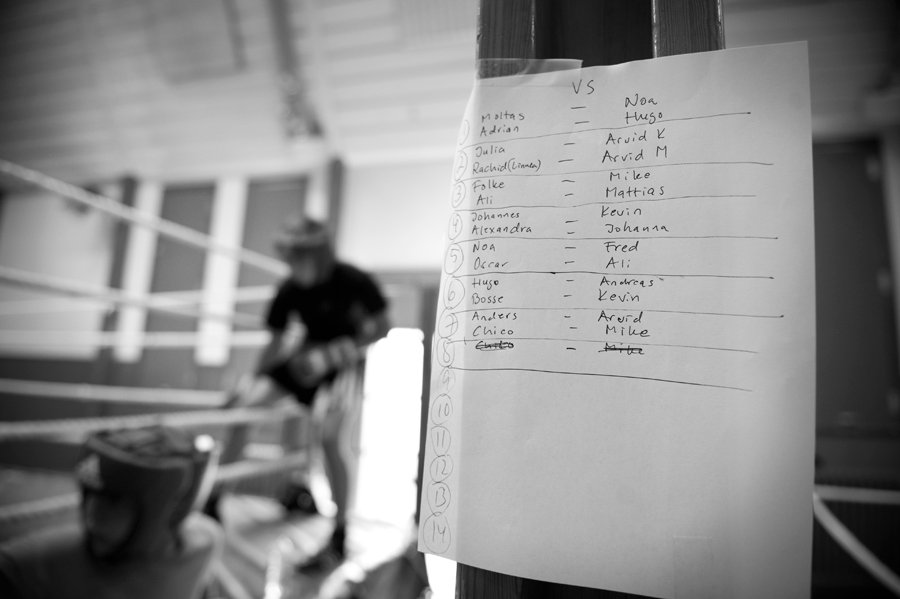 VS
Moltas - Noa
Adrian - Hugo
1
Julia - Arvid K
2 Rachid (Linnea) - Arvid M
Folke - Mike
3 Ali - Mattias
Johannes Kevin
4 Alexandra - Johanna
Noa - Fred
5 Oscar - Ali
Hugo - Andreas
6 Bosse - Kevin
Anders - Arvid
7 Chico - Mike
8 Chico - Mike
9
10
11
12
13
14